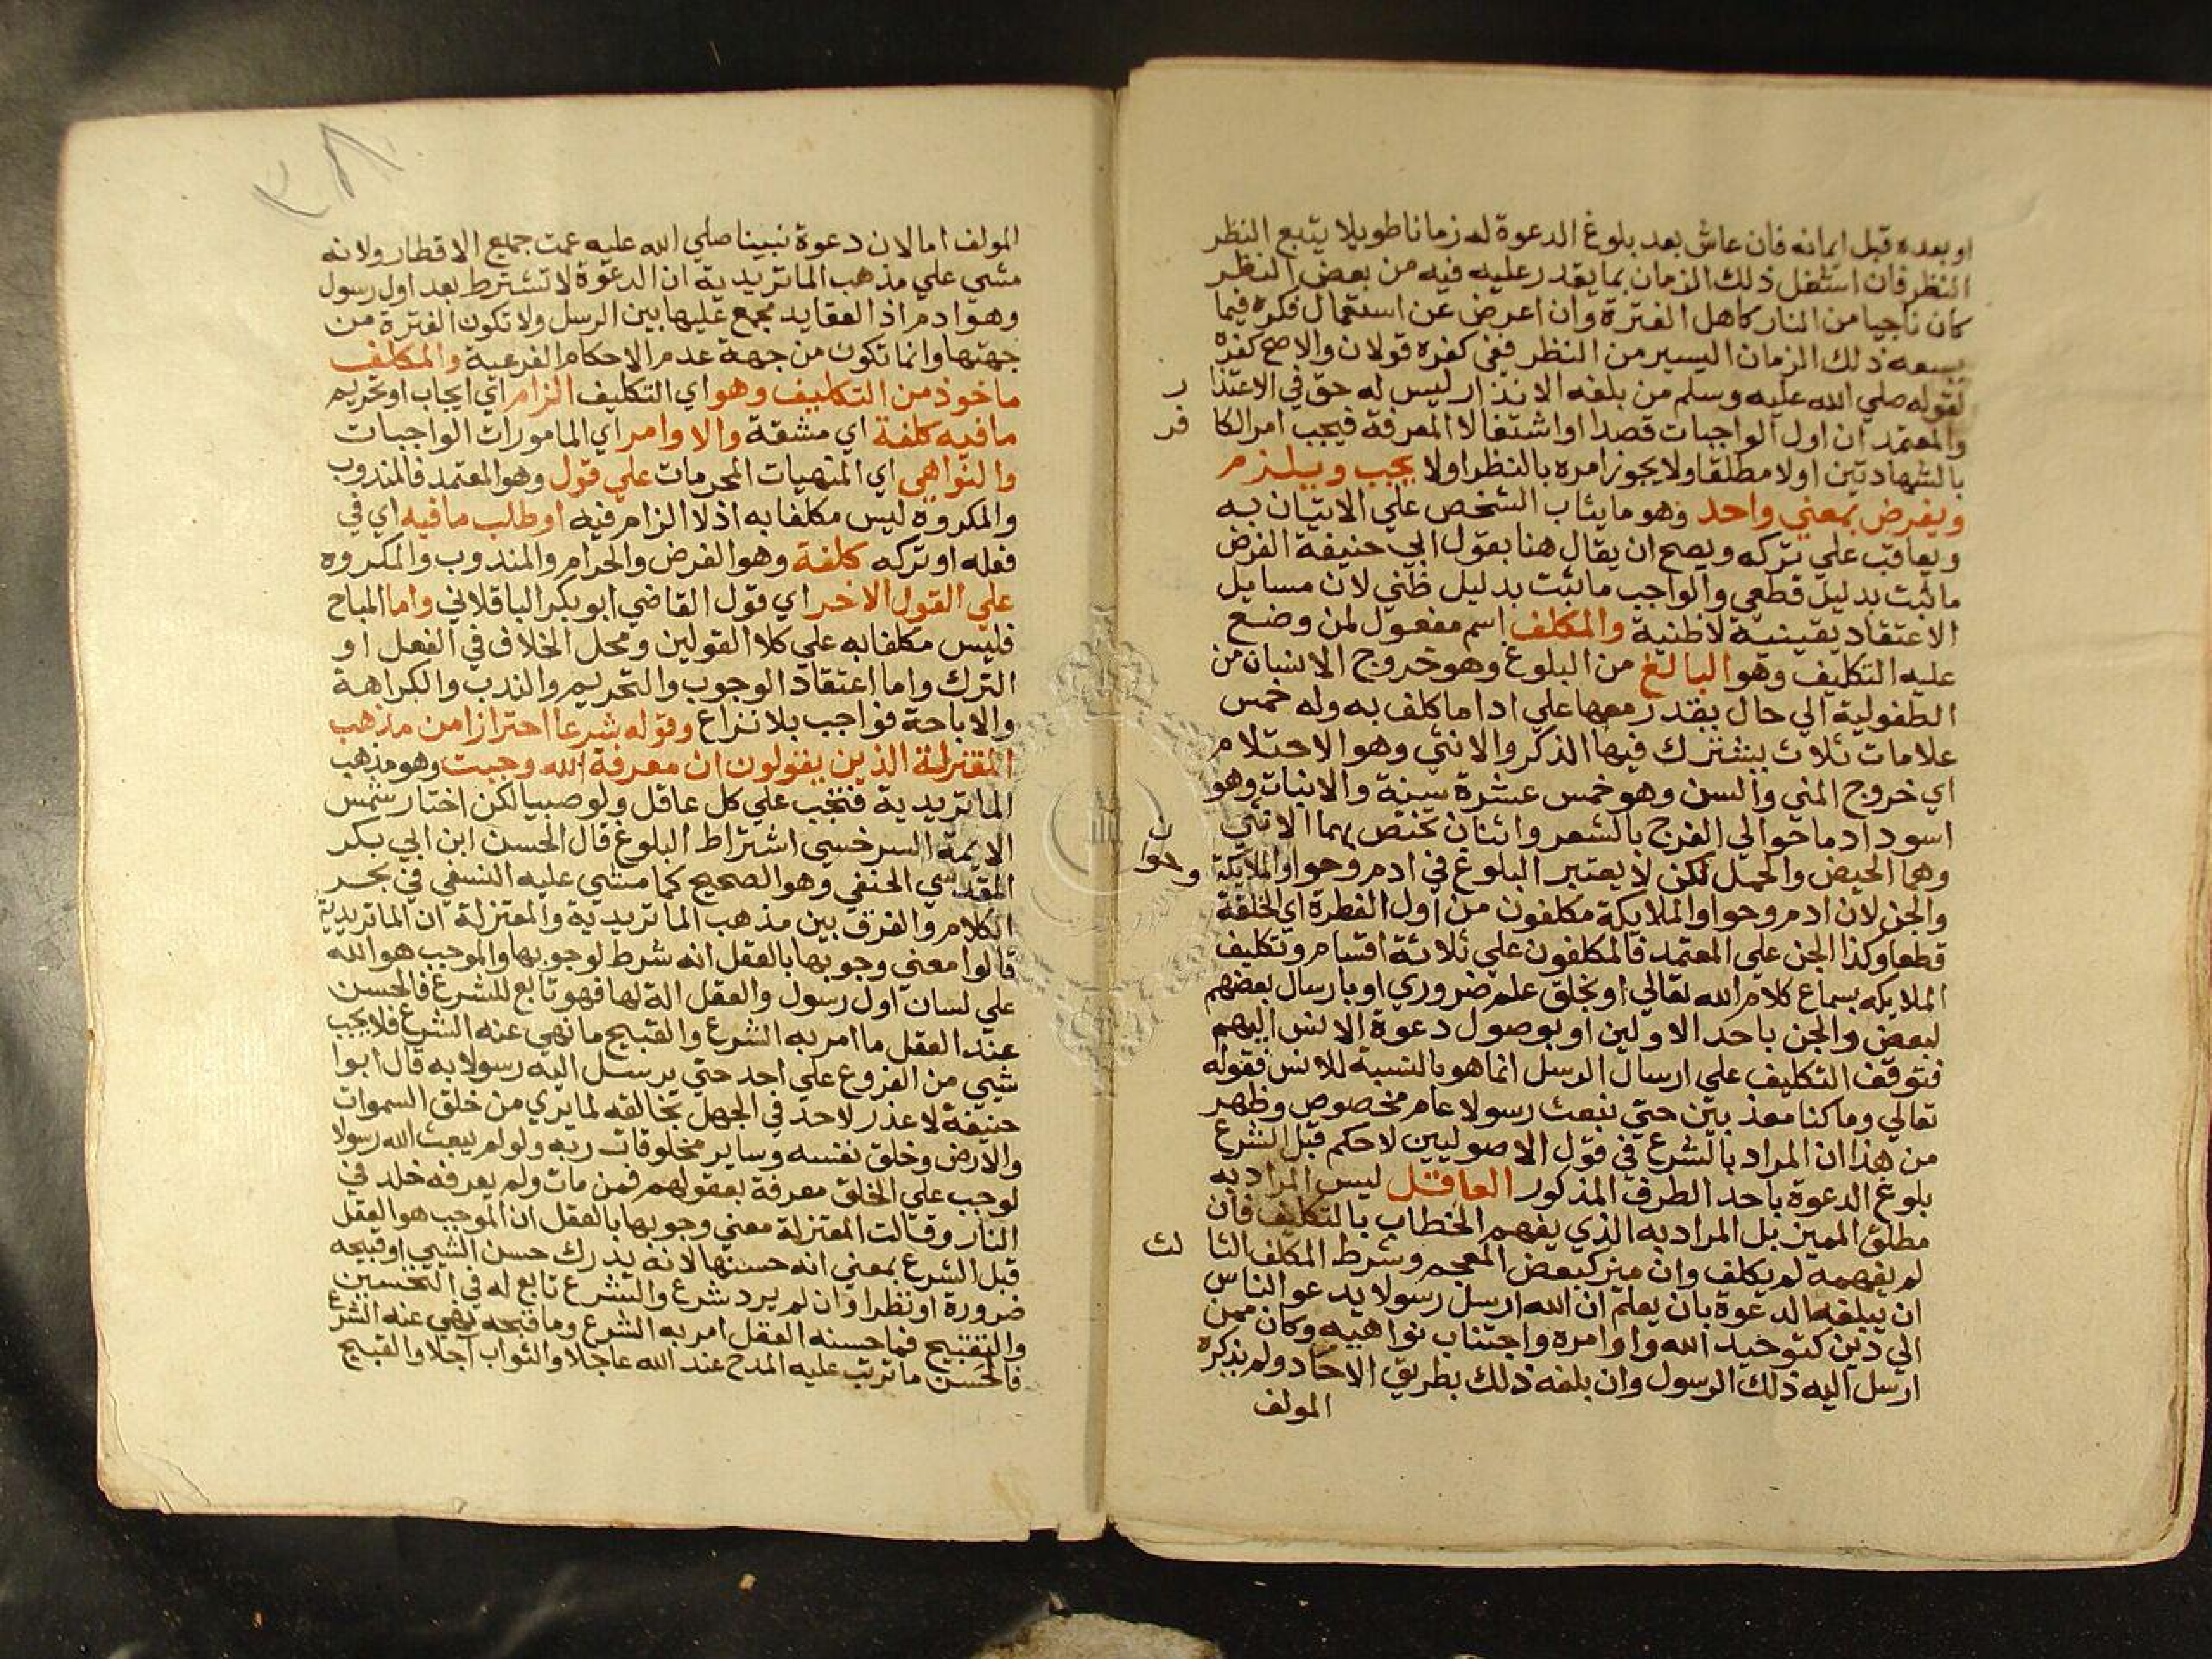 او بعده قبل ايمانه فان عاش بعد بلوغ الدعوة له زمانا طويلا يتبع النظر
النظر فان استغل ذلك الزمان بما يقدر عليه فيه من بعض النظر
كان ناجيا من النار كاهل الفترة وان اعرض عن استعمال فكره فيما
يسعه ذلك الزمان اليسير من النظر ففي كفره قولان والاصح كفره
لقوله صلي الله عليه وسلم من بلغه الانذار ليس له حق في الاعتذا ر
والمعتمد ان اول الواجبات قصدا او اشتغالا المعرفة فيجب امر الكا فر
بالشهادتين اولا مطلقا ولا يجوز امره بالنظر اولا يجب ويلزم
ويفرض بمعني واحد وهو ما يثاب الشخص علي الاتيان به
ويعاقب علي تركه ويصح ان يقال هنا بقول ابي حنيفة الفرض
ما ثبت بدليل قطعي والواجب ما ثبت بدليل ظني لان مسايل
الاعتقاد يقينية لا ظنية والمكلف اسم مفعول لمن وضع
عليه التكليف وهو البالغ من البلوغ وهو خروج الانسان من
الطفولية الي حال يقدر معها علي ادا ما كلف به وله خمس
علامات ثلاث يشترك فيها الذكر والانثي وهو الاحتلام
اي خروج المني والسن وهو خمس عشرة سنة والانبات وهو
اسوداد ما حوالي الفرج بالشعر واثنان تختص بهما الانثي
وهما الحيض والحمل لكن لا يعتبر البلوغ في ادم وحوا والملايكة
والجن لان ادم وحوا والملايكة مكلفون من اول الفطرة اي الخلقة
قطعا وكذا الجن علي المعتمد فالمكلفون علي ثلاثة اقسام وتكليف
الملايكه بسماع كلام الله تعالي او بخلق علم ضروري او بارسال بعضهم
لبعض والجن باحد الاولين او بوصول دعوة الانس اليهم
فتوقف التكليف علي ارسال الرسل انما هو بالنسبة للانس فقوله
تعالي وما كنا معذبين حتي نبعث رسولا عام مخصوص وظهر
من هذا ان المراد بالشرع في قول الاصوليين لا حكم قبل الشرع
بلوغ الدعوة باحد الطرق المذكور العاقل ليس المراد به
مطلق المميز بل المراد به الذي يفهم الخطاب بالتكليف فان
لم يفهمه لم يكلف وان ميز كبعض المعجم وشرط المكلف الثا لث
ان يبلغه الدعوة بان يعلم ان الله ارسل رسولا يدعو الناس
الي دين كتوحيد الله واوامره واجتناب نواهيه وكان ممن
ارسل اليه ذلك الرسول وان بلغه ذلك بطريق الاحاد ولم يذكره
المولف
المولف اما لان دعوة نبينا صلي الله عليه عمت جميع الاقطار ولانه
مشي علي مذهب الماتريدية ان الدعوة لا تشترط بعد اول رسول
وهو ادم اذ العقايد مجمع عليها بين الرسل ولا تكون الفترة من
جهتها وانما تكون من جهة عدم الاحكام الفرعية والمكلف
ماخوذ من التكليف وهو اي التكليف الزام اي ايجاب او تحريم
ما فيه كلفة اي مشقة والاوامر اي المامورات الواجبات
والنواهي اي المنهيات المحرمات علي قول وهو المعتمد فالمندوب
والمكروه ليس مكلفا به اذ لا الزام فيه او طلب ما فيه اي في
فعله او تركه كلفة وهو الفرض والحرام والمندوب والمكروه
علي القول الاخر اي قول القاضي ابو بكر الباقلاني واما المباح
فليس مكلفا به علي كلا القولين ومحل الخلاف في الفعل او
الترك واما اعتقاد الوجوب والتحريم والندب والكراهة
والاباحة فواجب بلا نزاع وقوله شرعا احترازا من مذهب
المعتزلة الذين يقولون ان معرفة الله وجبت وهو مذهب
الماتريدية فتجب علي كل عاقل ولو صبيا لكن اختار شمس
الايمة السرخسي اشتراط البلوغ قال الحسن ابن ابي بكر
المقدسي الحنفي وهو الصحيح كما مشي عليه النسفي في بحر
الكلام والفرق بين مذهب الماتريدية والمعتزلة ان الماتريدية
قالوا معني وجوبها بالعقل انه شرط لوجوبها والموجب هو الله
علي لسان اول رسول والعقل الة لها فهو تابع للشرع فالحسن
عند العقل ما امر به الشرع والقبيح ما نهي عنه الشرع فلا يجب
شيي من الفروع علي احد حتي يرسل اليه رسولا به قال ابوا
حنيفة لا عذر لاحد في الجهل بخالقه لما يري من خلق السموات
والارض وخلق نفسه وساير مخلوقات ربه ولو لم يبعث الله رسولا
لوجب علي الخلق معرفة بعقولهم فمن مات ولم يعرفه خلد في
النار وقالت المعتزلة معني وجوبها بالعقل ان الموجب هو العقل
قبل الشرع بمعني انه حسنها لانه يدرك حسن الشيي او قبيحه
ضرورة او نظرا وان لم يرد شرع والشرع تابع له في التحسين
والتقبيح فما حسنه العقل امر به الشرع وما قبحه نهي عنه الشرع
فالحسن ما ترتب عليه المدح عند الله عاجلا والثواب آجلا والقبيح